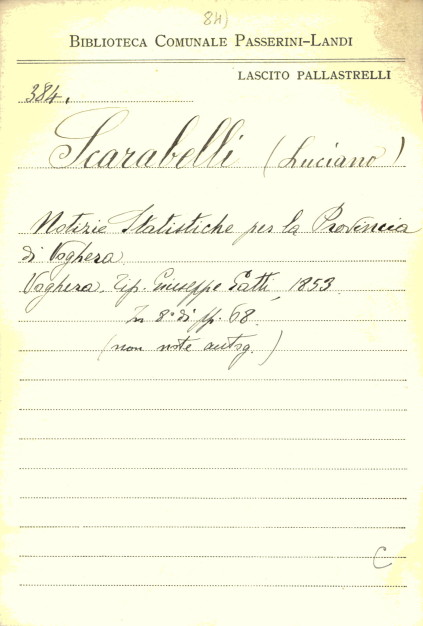 84)
BIBLIOTECA COMUNALE PASSERINI-LANDI
LASCITO PALLASTRELLI
384.
Scarabelli (Luciano)
Notizie Statistiche per la Provincia
di Voghera
Voghera. Tip. Giuseppe Gatti, 1853.
In 8° di pp. 68.
(con note autog.)
C